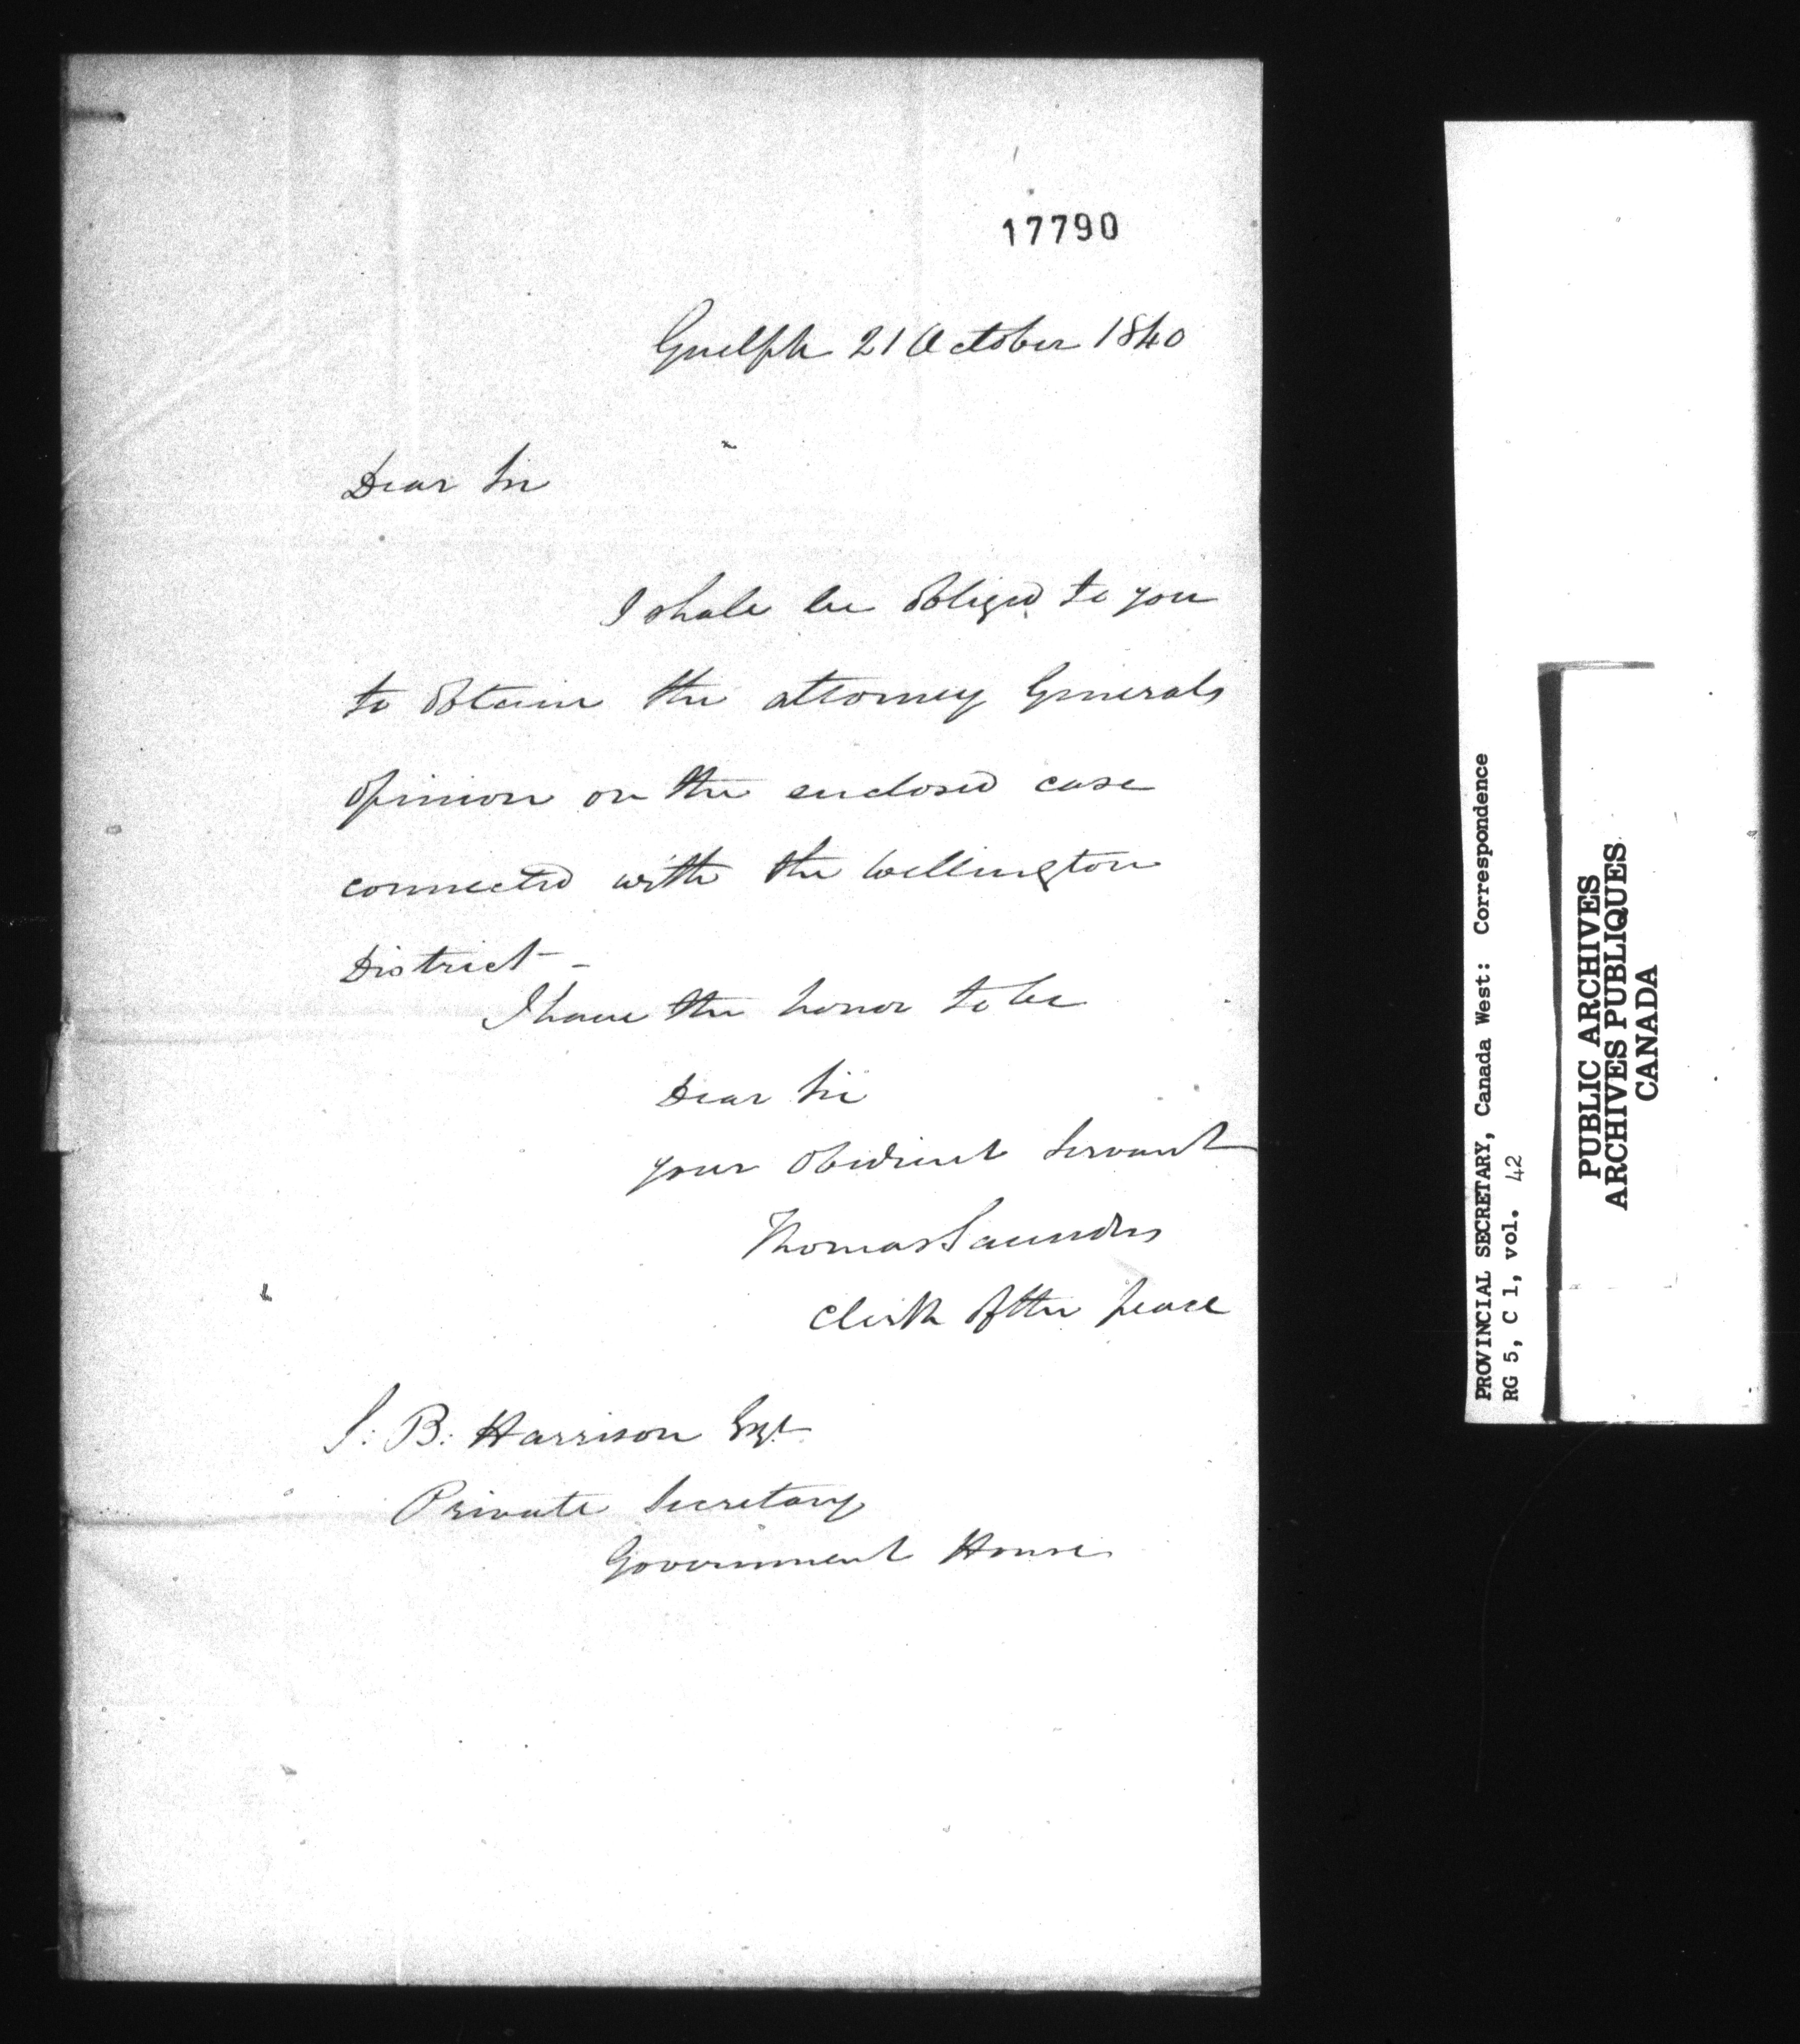 17790
Guelph 21 October 1840
Dear Sir
I shall be obliged to you
to obtain the attorney Generals
opinion on the enclosed case
connected with the Wellington
District -
I have the honor to be
Dear Sir
your obedient Servant
Thomas Saunders
Clerk of the peace
S: B: Harrison Esqr
Private Secretary
Government House
PROVINCIAL SECRETARY, Canada West: Correspondence
RG 5, C 1, vol. 42
PUBLIC ARCHIVES
ARCHIVES PUBLIQUES
CANADA